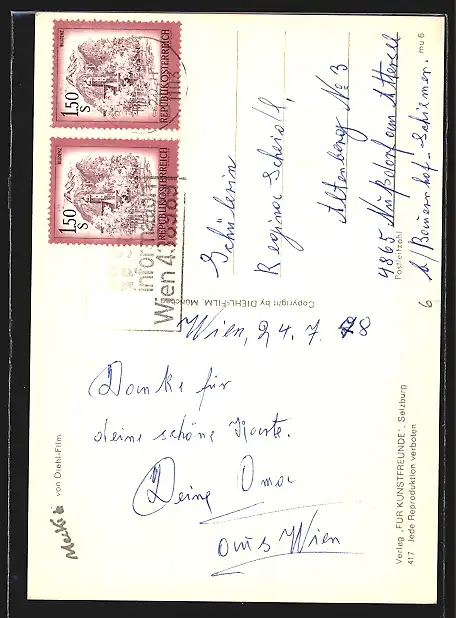 BLUDENZ
1.50
S
REPUBLIK ÖSTERREICH
BLUDENZ
1.50
S
REPUBLIK ÖSTERREICH
Wien
Schülerin
Regina Scheroll,
Altenberg No 3
4865 Nußdorf am Attersee
Postleitzahl
b/Bauernhof-Schiemer.
mu 6
6
Copyright by DIEHL-FILM, München
Wien, 24.7. 78
Danke für
deine schöne Karte.
Deine Oma
aus Wien
Mecki
von Diehl-Film
Verlag „FÜR KUNSTFREUNDE“, Salzburg
417 Jede Reproduktion verboten